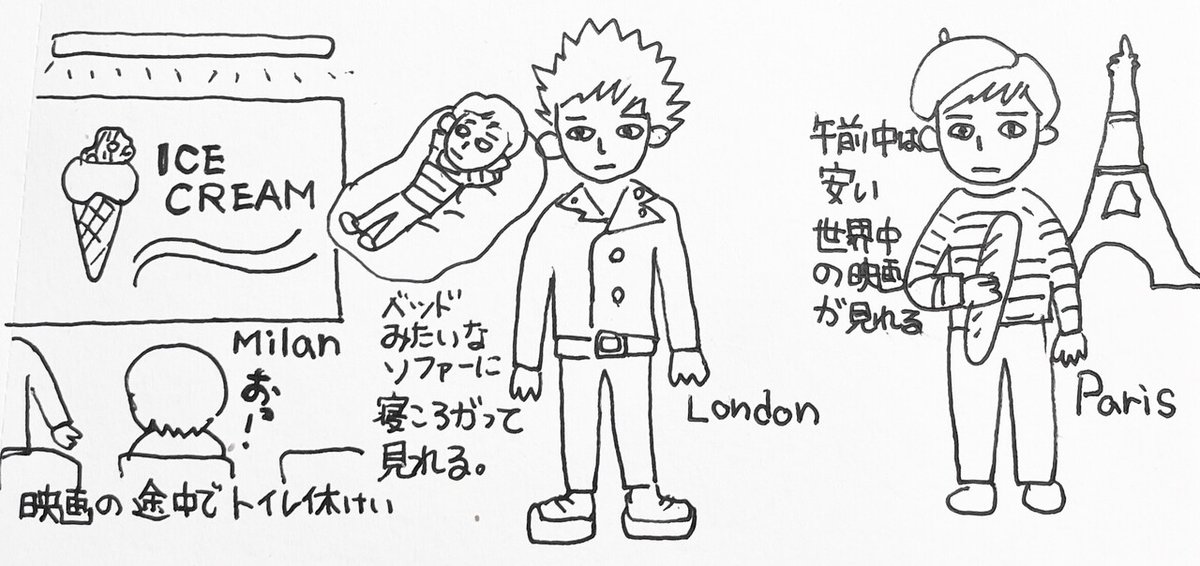 ICE
CREAM
Milan
おっ!
映画の途中でトイレ休けい
ベッド
みたいな
ソファーに
寝ころがって
見れる。
London
午前中は
安い
世界中
の映画
が見れる
Paris